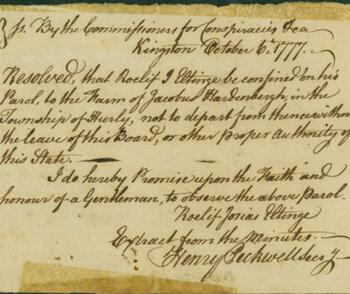 Js. By the Commissioners for Conspiracies &ca
Kingston October 6. 1777.
Resolved, that Roelif J Eltinge be confined on his
Parol, to the Farm of Jacobus Hardenbergh, in the
Township of Hurly, not to depart from thence without
the leave of this Board, or other proper Authority of
this State.
I do hereby Promise upon the Faith and
honour of a Gentleman, to observe the above Parol.
Roelif Josias Eltinge
Extract from the Minutes.
Henry Peckwell Secy